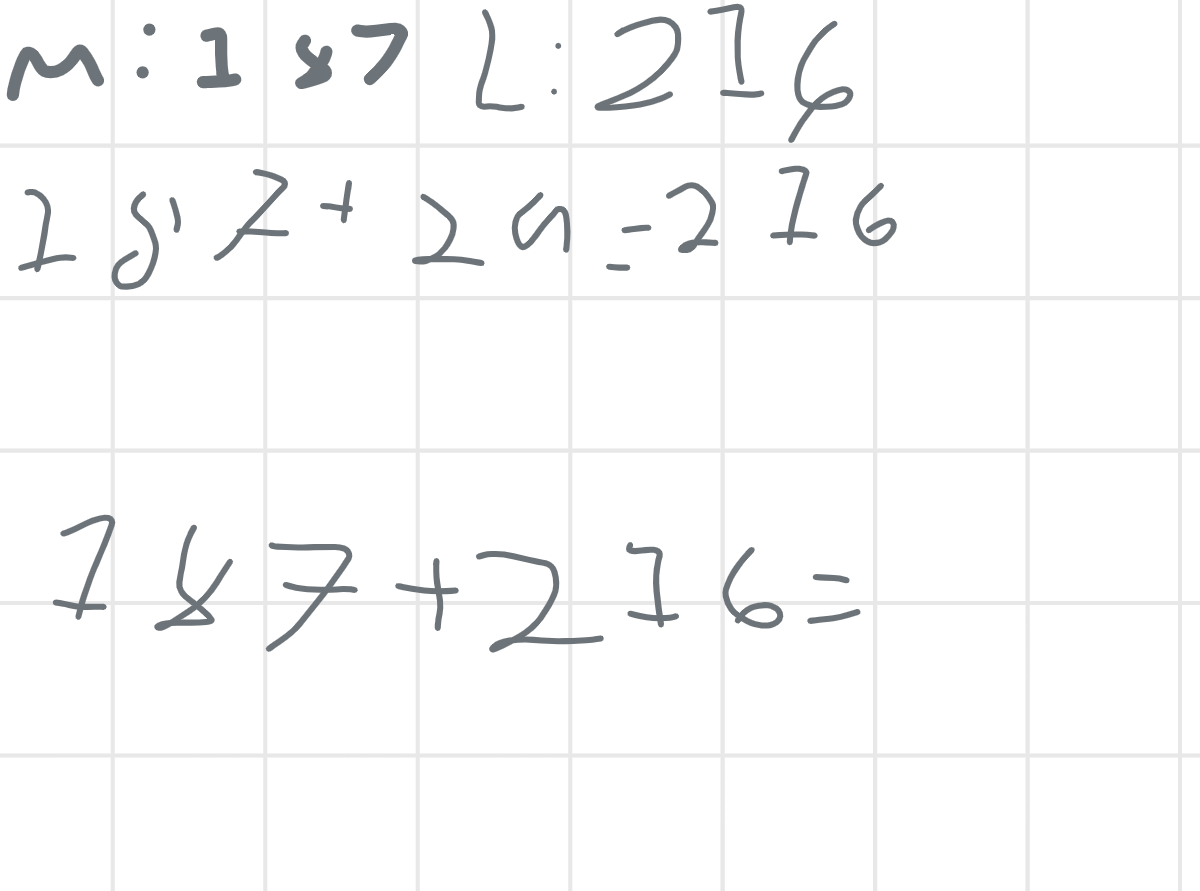 M: 187 L: 216
187 + 29 = 216
187 + 216 =